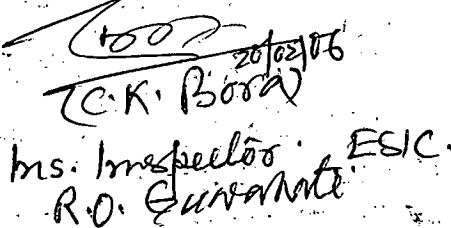 20/02/06
(C.K. Bora)
Ins. Inspector. ESIC.
R.O. Guwahati